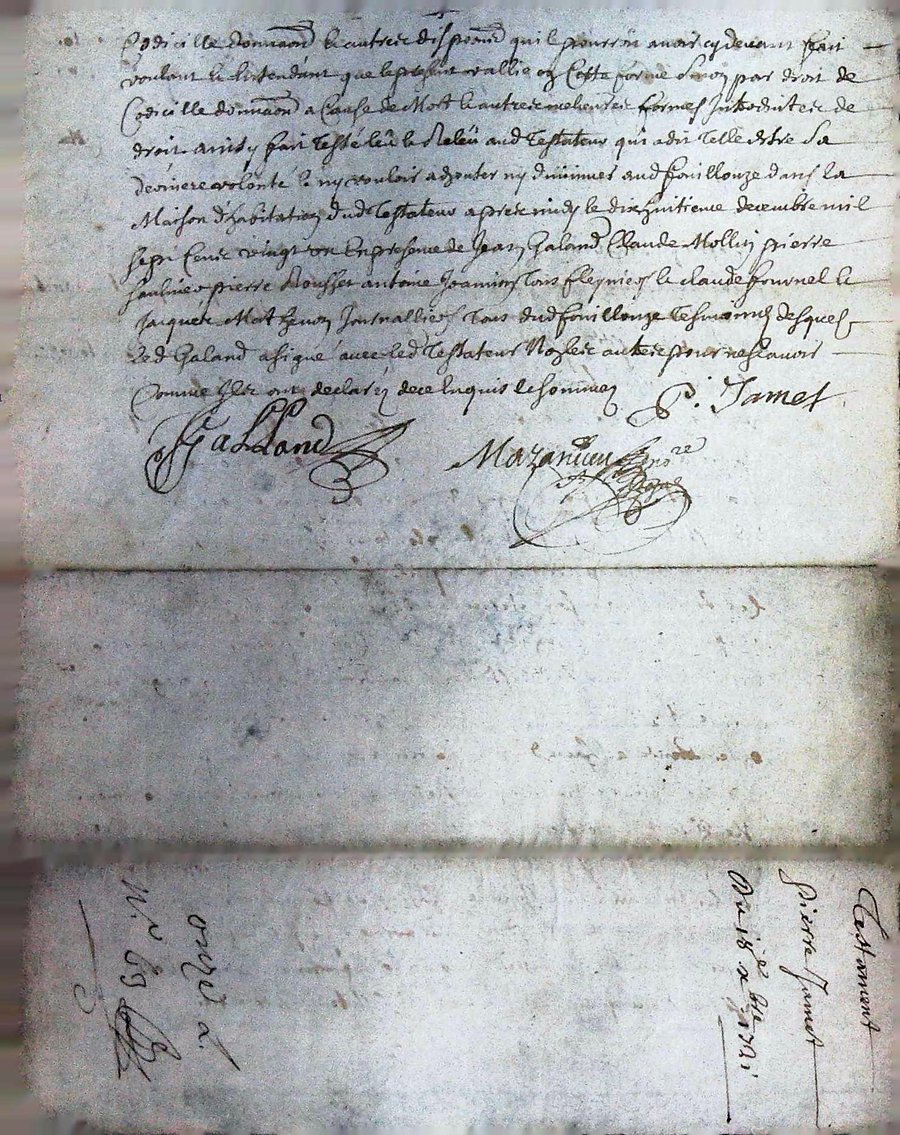 Codicille donnaon & autres disposons quil pourroit avoir cy devant fait
voulant & entendant que le present vallie en cette forme sinon par droit de
Codicille donnaon a cause de mort & autres meheures formes introduites de
droit ainsy fait testé leü & releü aud testateur qui a dit telle estre sa
derniere volonté & ny vouloir adjouter ny diminuer aud fouillouze dans la
Maison d'habitation dud testateur apres midy le dixhuitieme decembre mil
sept cens vingt un en presence de Jean Galand Claude Mollin pierre
pierre Rousset antoine Jeannin tous & claude fournel &
Jacques Mort Journalliers tous dud fouillouze tesmoins desquels
led Galand a signé avec led testateur non les autres pour ne scavoir
Comme ils ont declaré de ce enquis & sommes
P. Jamet
J Galland
Mazanieu nore
Royal
Testament
pierre Jamet
Du 18 xbre 1721
onze L.
N.o 69